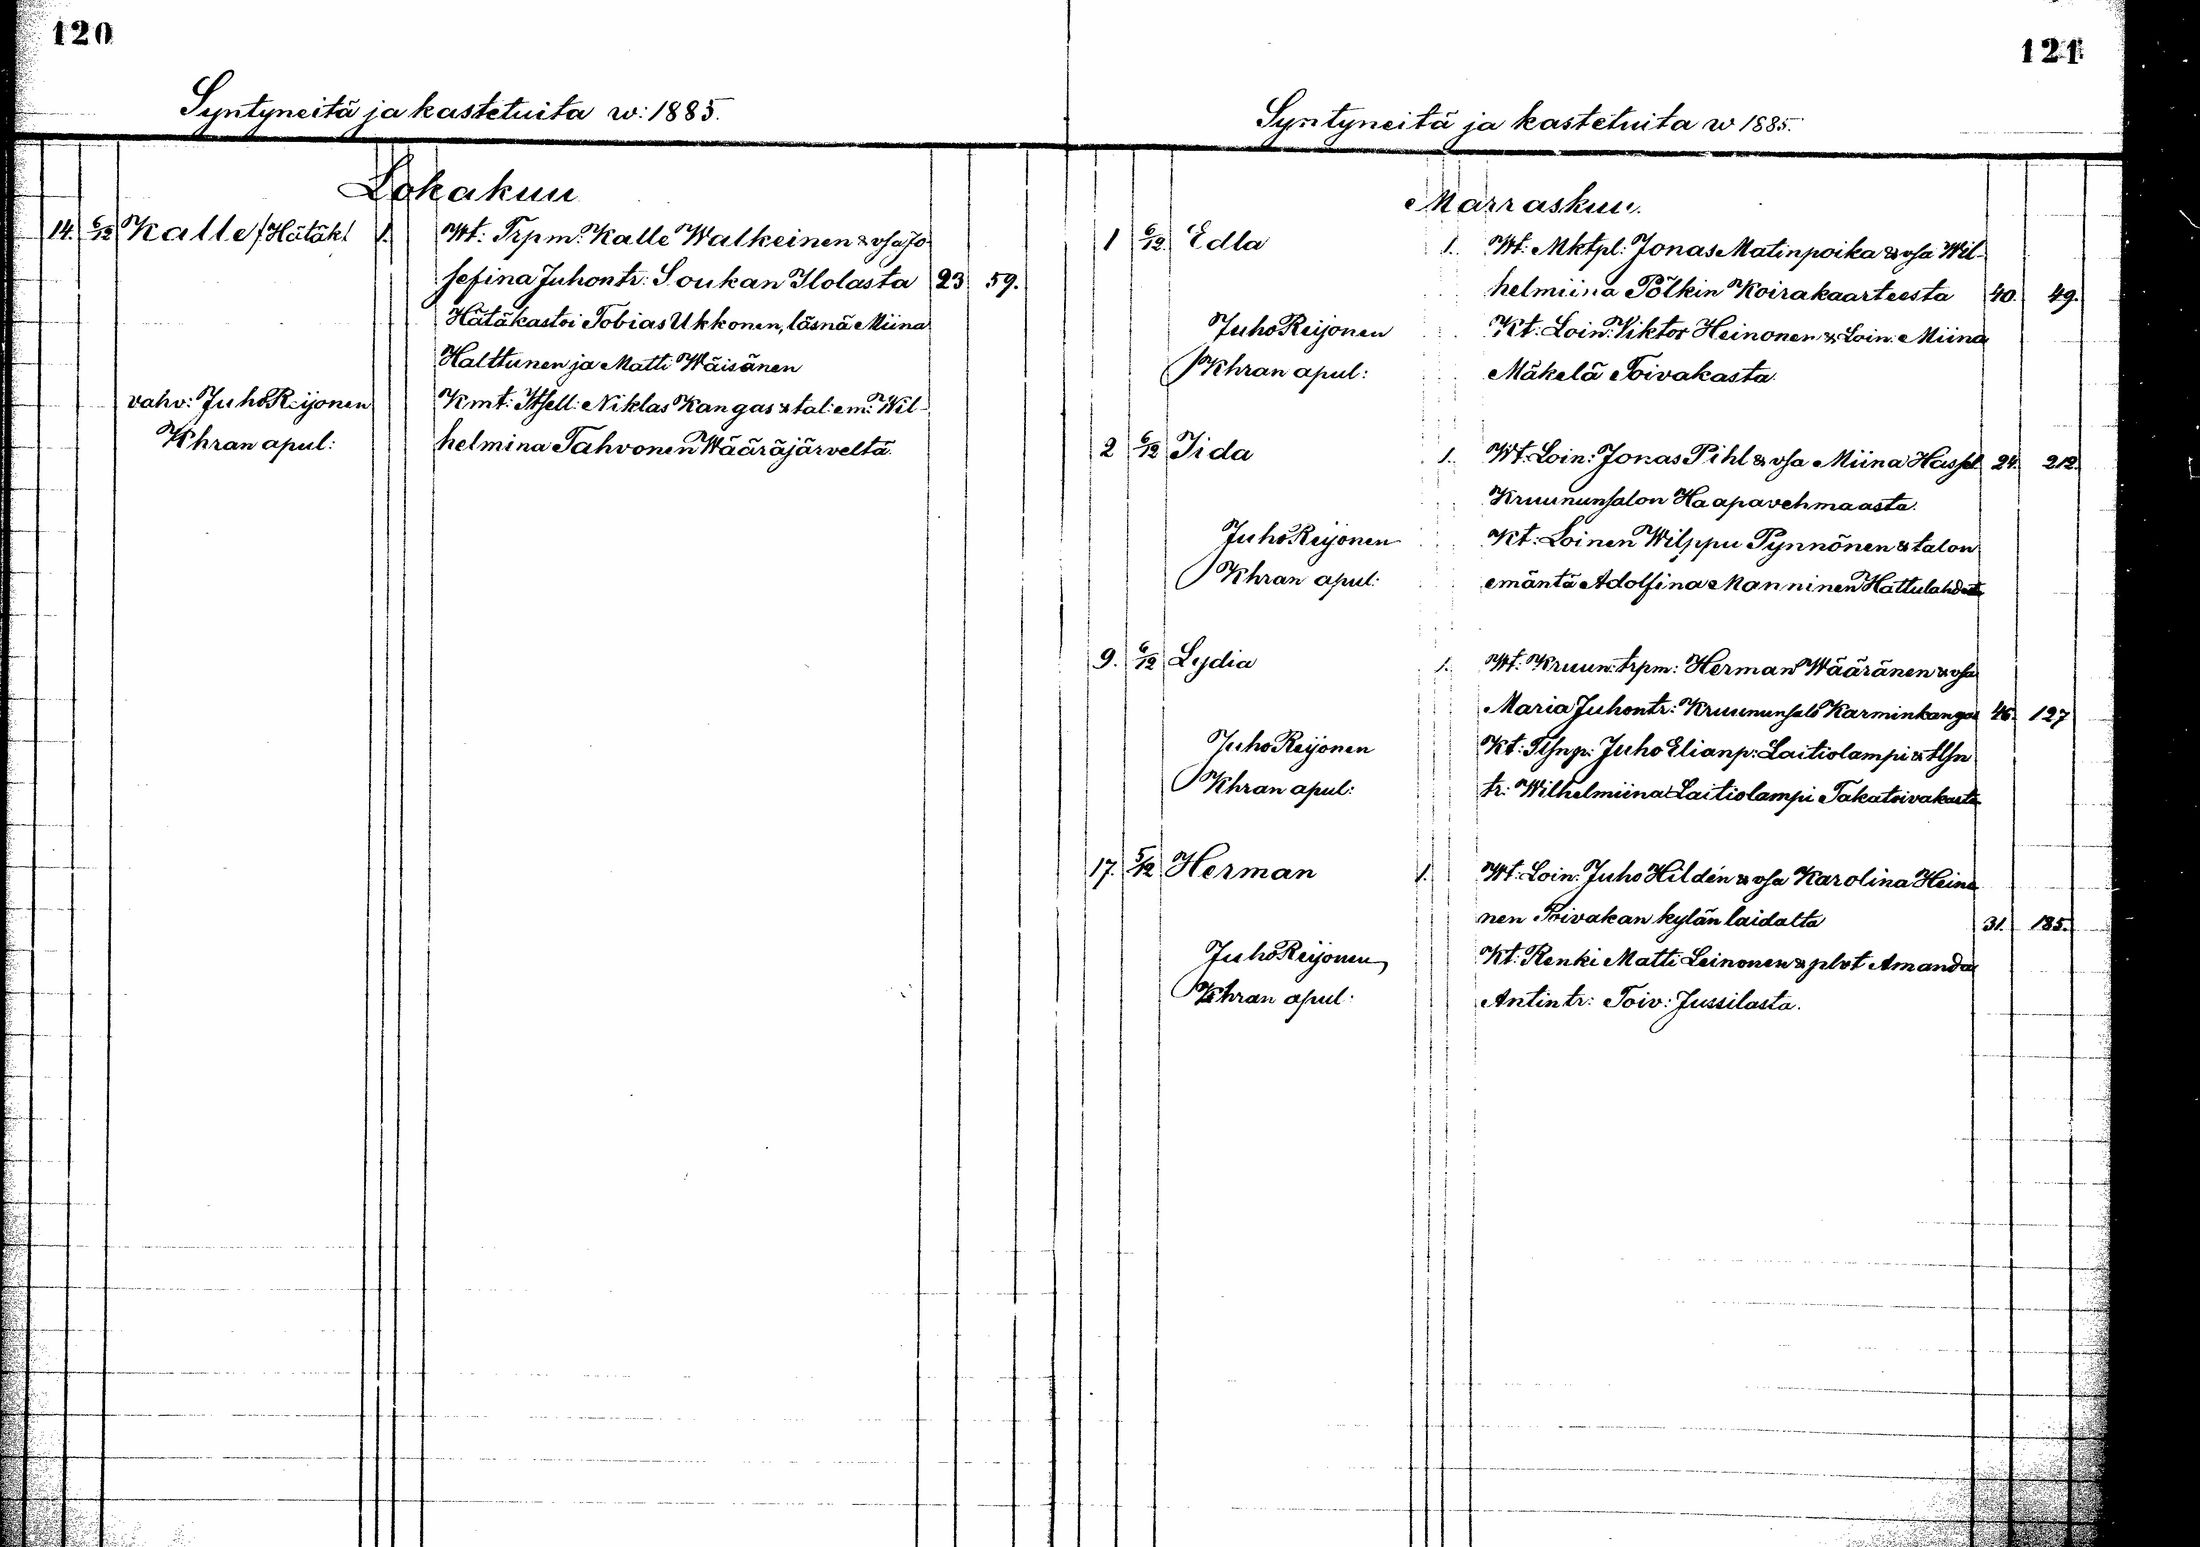 120
Syntyneitä ja kastetuita w: 1885.
Lokakuu
14. 6/12 Kalle /Hätäk/ 1. Wt: Trpm: Kalle Walkeinen & vsa Jo-
sefina Juhontr: Soukan Ilolasta 23 59.
Hätäkastoi Tobias Ukkonen, läsnä Miina
Halttunen ja Matti Wäisänen
vahv: Juho Reijonen Kmt: Itsell: Niklas Kangas & tal: em: Wil-
Khran apul: helmina Tahvonen Wääräjärveltä.
121
Syntyneitä ja kastetuita w 1885.
Marraskuu.
1 6/12 Edla 1. Wt: Mktpl: Jonas Matinpoika & vsa Wil-
helmiina Pölkin Koirakaarteesta 40. 49.
Juho Reijonen Kt: Loin: Viktor Heinonen & Loin: Miina
Khran apul: Mäkelä Toivakasta.
2 6/12 Iida 1. Wt: Loin: Jonas Pihl & vsa Miina 24. 212.
Kruununsalon Haapavehmaasta.
Juho Reijonen Kt: Loinen Wilppu Pynnönen & talon
Khran apul: emäntä Adolfina Manninen
9. 6/12 Lydia 1. Wt: Kruun: trpm: Herman Wääränen & vsa
Maria Juhontr: Kruununsalo Karminkangas 46. 127
Juho Reijonen Kt: Tlsnp: Juho Elianp: Laitiolampi & tlsn
Khran apul: tr: Wilhelmiina Laitiolampi Takatoivakasta
17. 5/12 Herman 1. Wt: Loin: Juho Hildén & vsa Karolina Heino
nen Toivakan kylän laidalta 31. 185.
Juho Reijonen Kt: Renki Matti Leinonen & plvt Amanda
Khran apul: Antintr: Toiv: Jussilasta.